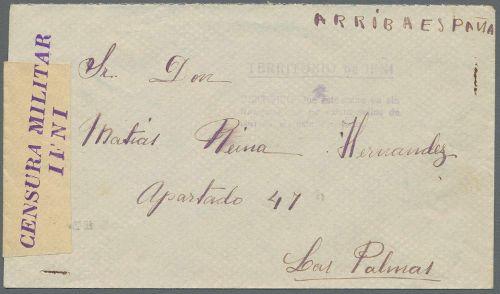 ARRIBA ESPAÑA
TERRITORIO DE IFNI
Sr. Don
Matías Reina Hernandez
Apartado 47
Las Palmas
CENSURA MILITAR
IFNI